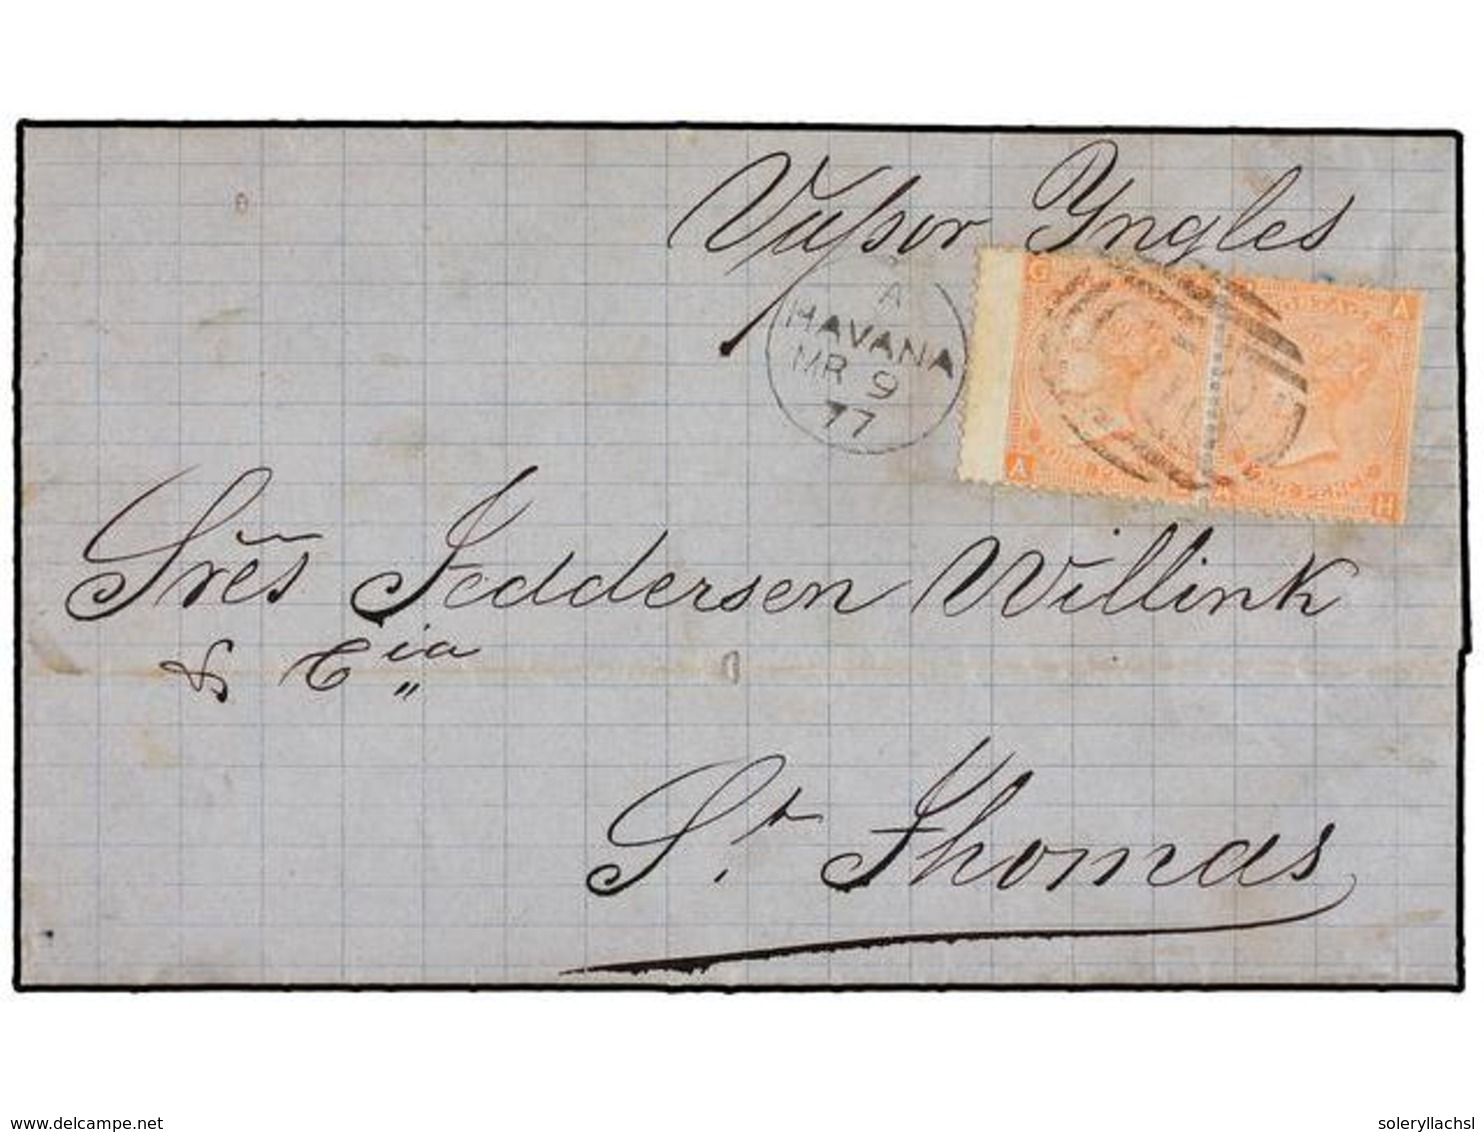 Vapor Yngles
A
HAVANA
MR 9
77
G
A
A
H
Sres Feddersen Willink
& Cia
St. Thomas
www.delcampe.net
soleryllachsl